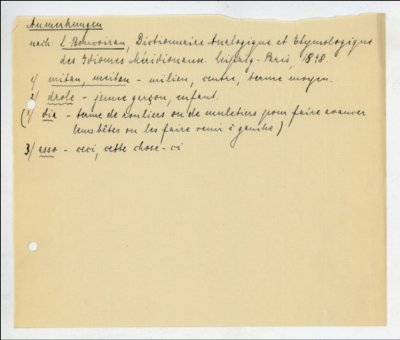 Anmerkungen
nach: L. Boucoiran, Dictionnaire Analogique et Etymologique
des Idiomes Méridionaux. Leipzig-Paris, 1898.
1/ mitan, meitan - milieu, centre, terme moyen.
2/ drole - jeune garçon, enfant.
(?/ dia - terme de rouliers ou de muletiers pour faire avancer
leurs bêtes ou les faire venir à gauche)
3/ asso - ceci, cette chose-ci